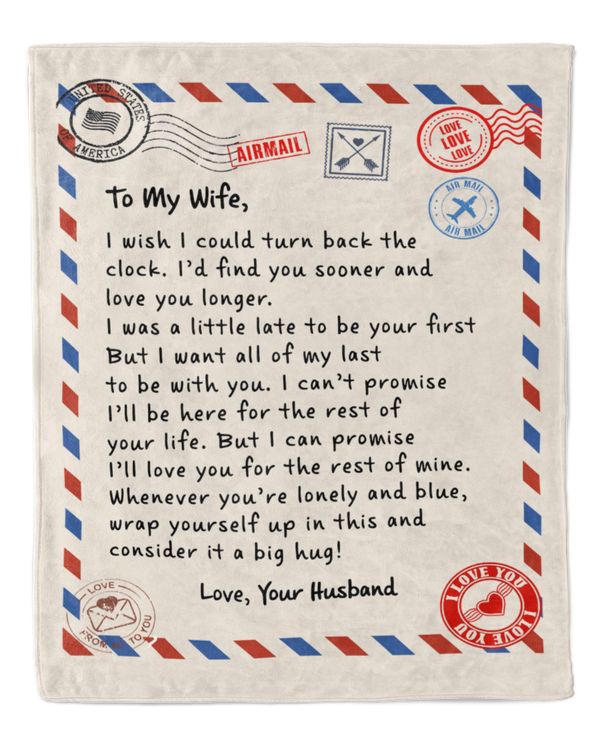 UNITED STATES
OF AMERICA
AIRMAIL
LOVE
LOVE
LOVE
AIR MAIL
AIR MAIL
To My Wife,
I wish I could turn back the
clock. I'd find you sooner and
love you longer.
I was a little late to be your first
But I want all of my last
to be with you. I can't promise
I'll be here for the rest of
your life. But I can promise
I'll love you for the rest of mine.
Whenever you're lonely and blue,
wrap yourself up in this and
consider it a big hug!
Love, Your Husband
LOVE
TO YOU
I LOVE YOU
I LOVE YOU